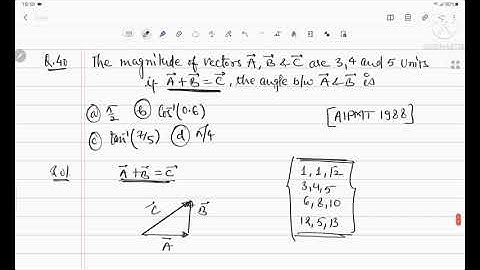 Q.40 The magnitude of vectors A⃗, B⃗ & C⃗ are 3, 4 and 5 units
if A⃗ + B⃗ = C⃗, the angle b/w A⃗ & B⃗ is
(a) π/2 (b) cos⁻¹(0.6)
[AIPMT 1988]
(c) tan⁻¹(7/5) (d) π/4
Sol. A⃗ + B⃗ = C⃗
C⃗ B⃗
A⃗
1, 1, √2
3, 4, 5
6, 8, 10
12, 5, 13